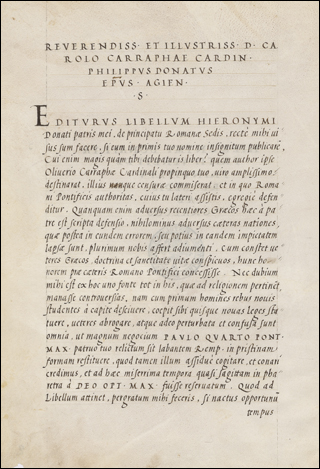 REVERENDISS· ET ILLUSTRISS· D· CA
ROLO CARRAPHAE CARDIN·
PHILIPPVS DONATVS
EPVS· AGIEN·
·S·
EDITURVS LIBELLVM HIERONYMI
Donati patris mei, de principatu Romanæ Sedis, rectè mihi ui
sus sum facere, si eum in primis tuo nomine insignitum publicarē,
Cui enim magis quàm tibi debebatur is liber? quem author ipse
Oliuerio Carraphæ Cardinali propinquo tuo, uiro amplissimo
destinarat, illius nanque censuræ commiserat, et in quo Roma
ni Pontificis authoritas, cuius tu lateri assistis, egregiè defen
ditur. Quanquam enim aduersus recentiores Græcos hæc à pa
tre est scripta defensio, nihilominus aduersus cæteras nationes,
quæ postea in eundem errorem, seu potius in eandem impietatem
lapsæ sunt, plurimum nobis affert adiumenti. Cum constet ue
teres Græcos, doctrina et sanctitate uitæ conspicuos, hunc ho-
norem præ cæteris Romano Pontifici concessisse. Nec dubium
mihi est ex hoc uno fonte tot in his, quæ ad religionem pertinēt,
manasse controuersias, nam cum primum homines rebus nouis
studentes à capite desciuere, cœpit sibi quisque nouas leges sta
tuere, ueteres abrogare, atque adeo perturbata et confusa sunt
omnia, ut magnum negocium PAVLO QVARTO PONT·
MAX· patruo tuo relictum sit labantem Remp· in pristinam
formam restituere, quod tamen illum assiduè cogitare, et conari
credimus, et ad hæc miserrima tempora quasi sagittam in pha
retra à DEO OPT· MAX· fuisse reseruatum. Quod ad
Libellum attinet, pergratum mihi feceris, si nactus opportunū
tempus